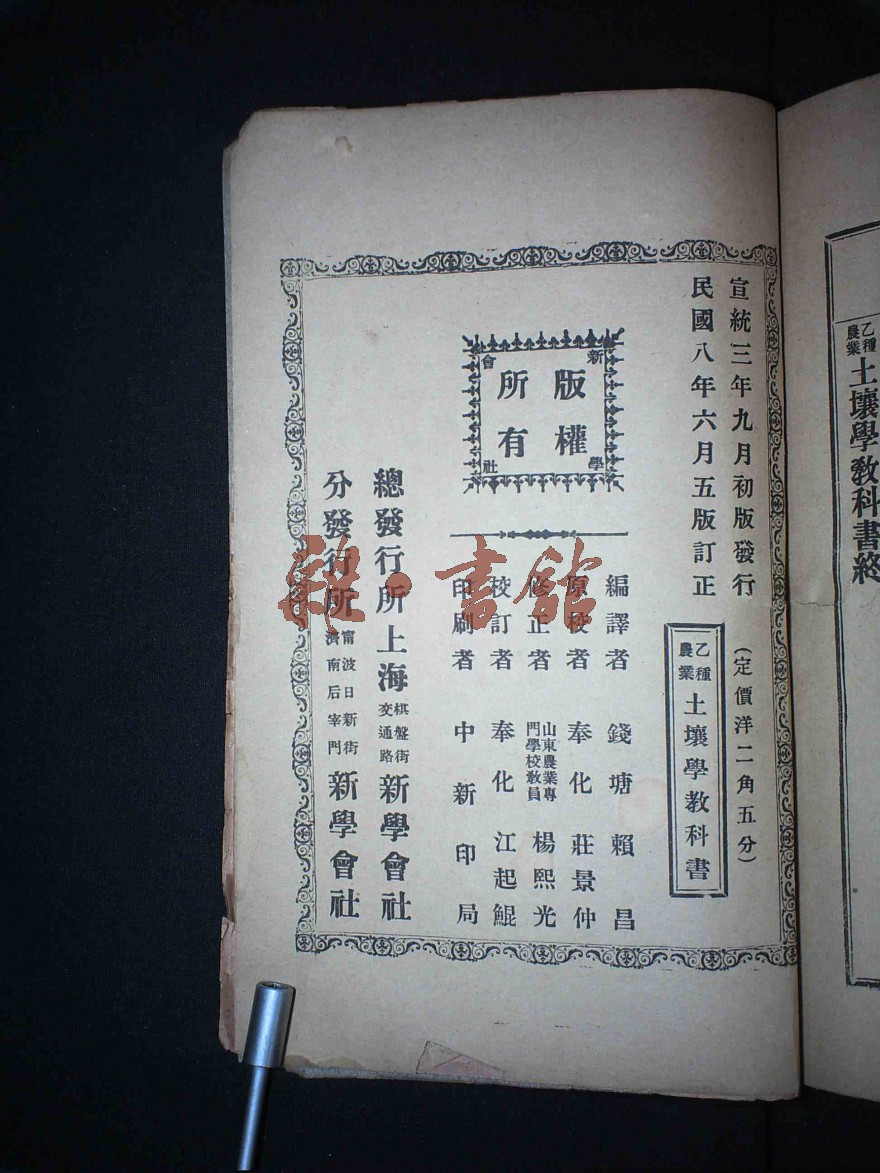 乙種農業 土壤學敎科書終
宣統三年九月初版發行 (定價洋二角五分)
民國八年六月五版訂正
乙種農業 土壤學敎科書
新學會社
版權
所有
編譯者 錢塘 賴昌
原校者 奉化 莊景仲
修正者 山東農業專門學校敎員 楊熙光
校訂者 奉化 江起鯤
印刷者 中新印局
總發行所 上海 棋盤街交通路 新學會社
分發行所 甯波日新街 濟南后宰門 新學會社
雜·書館